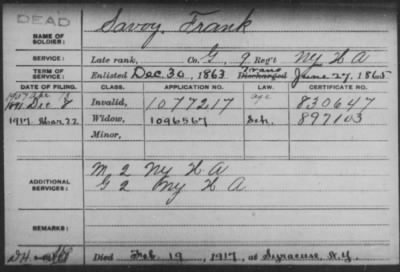 DEAD
NAME OF SOLDIER: Savoy, Frank
SERVICE: Late rank, Co. G, 9 Reg't NY H A
TERM OF SERVICE: Enlisted Dec 30, 1863 Trans Discharged June 27, 1865
DATE OF FILING. CLASS. APPLICATION NO. LAW. CERTIFICATE NO.
1891 Dec 8 Invalid, 1077217 age 830647
1917. Mar. 22 Widow, 1096567 897103
Minor,
ADDITIONAL SERVICES: M 2 NY H A
G 2 NY H A
REMARKS:
Died Feb. 19, 1917, at Syracuse, N.Y.